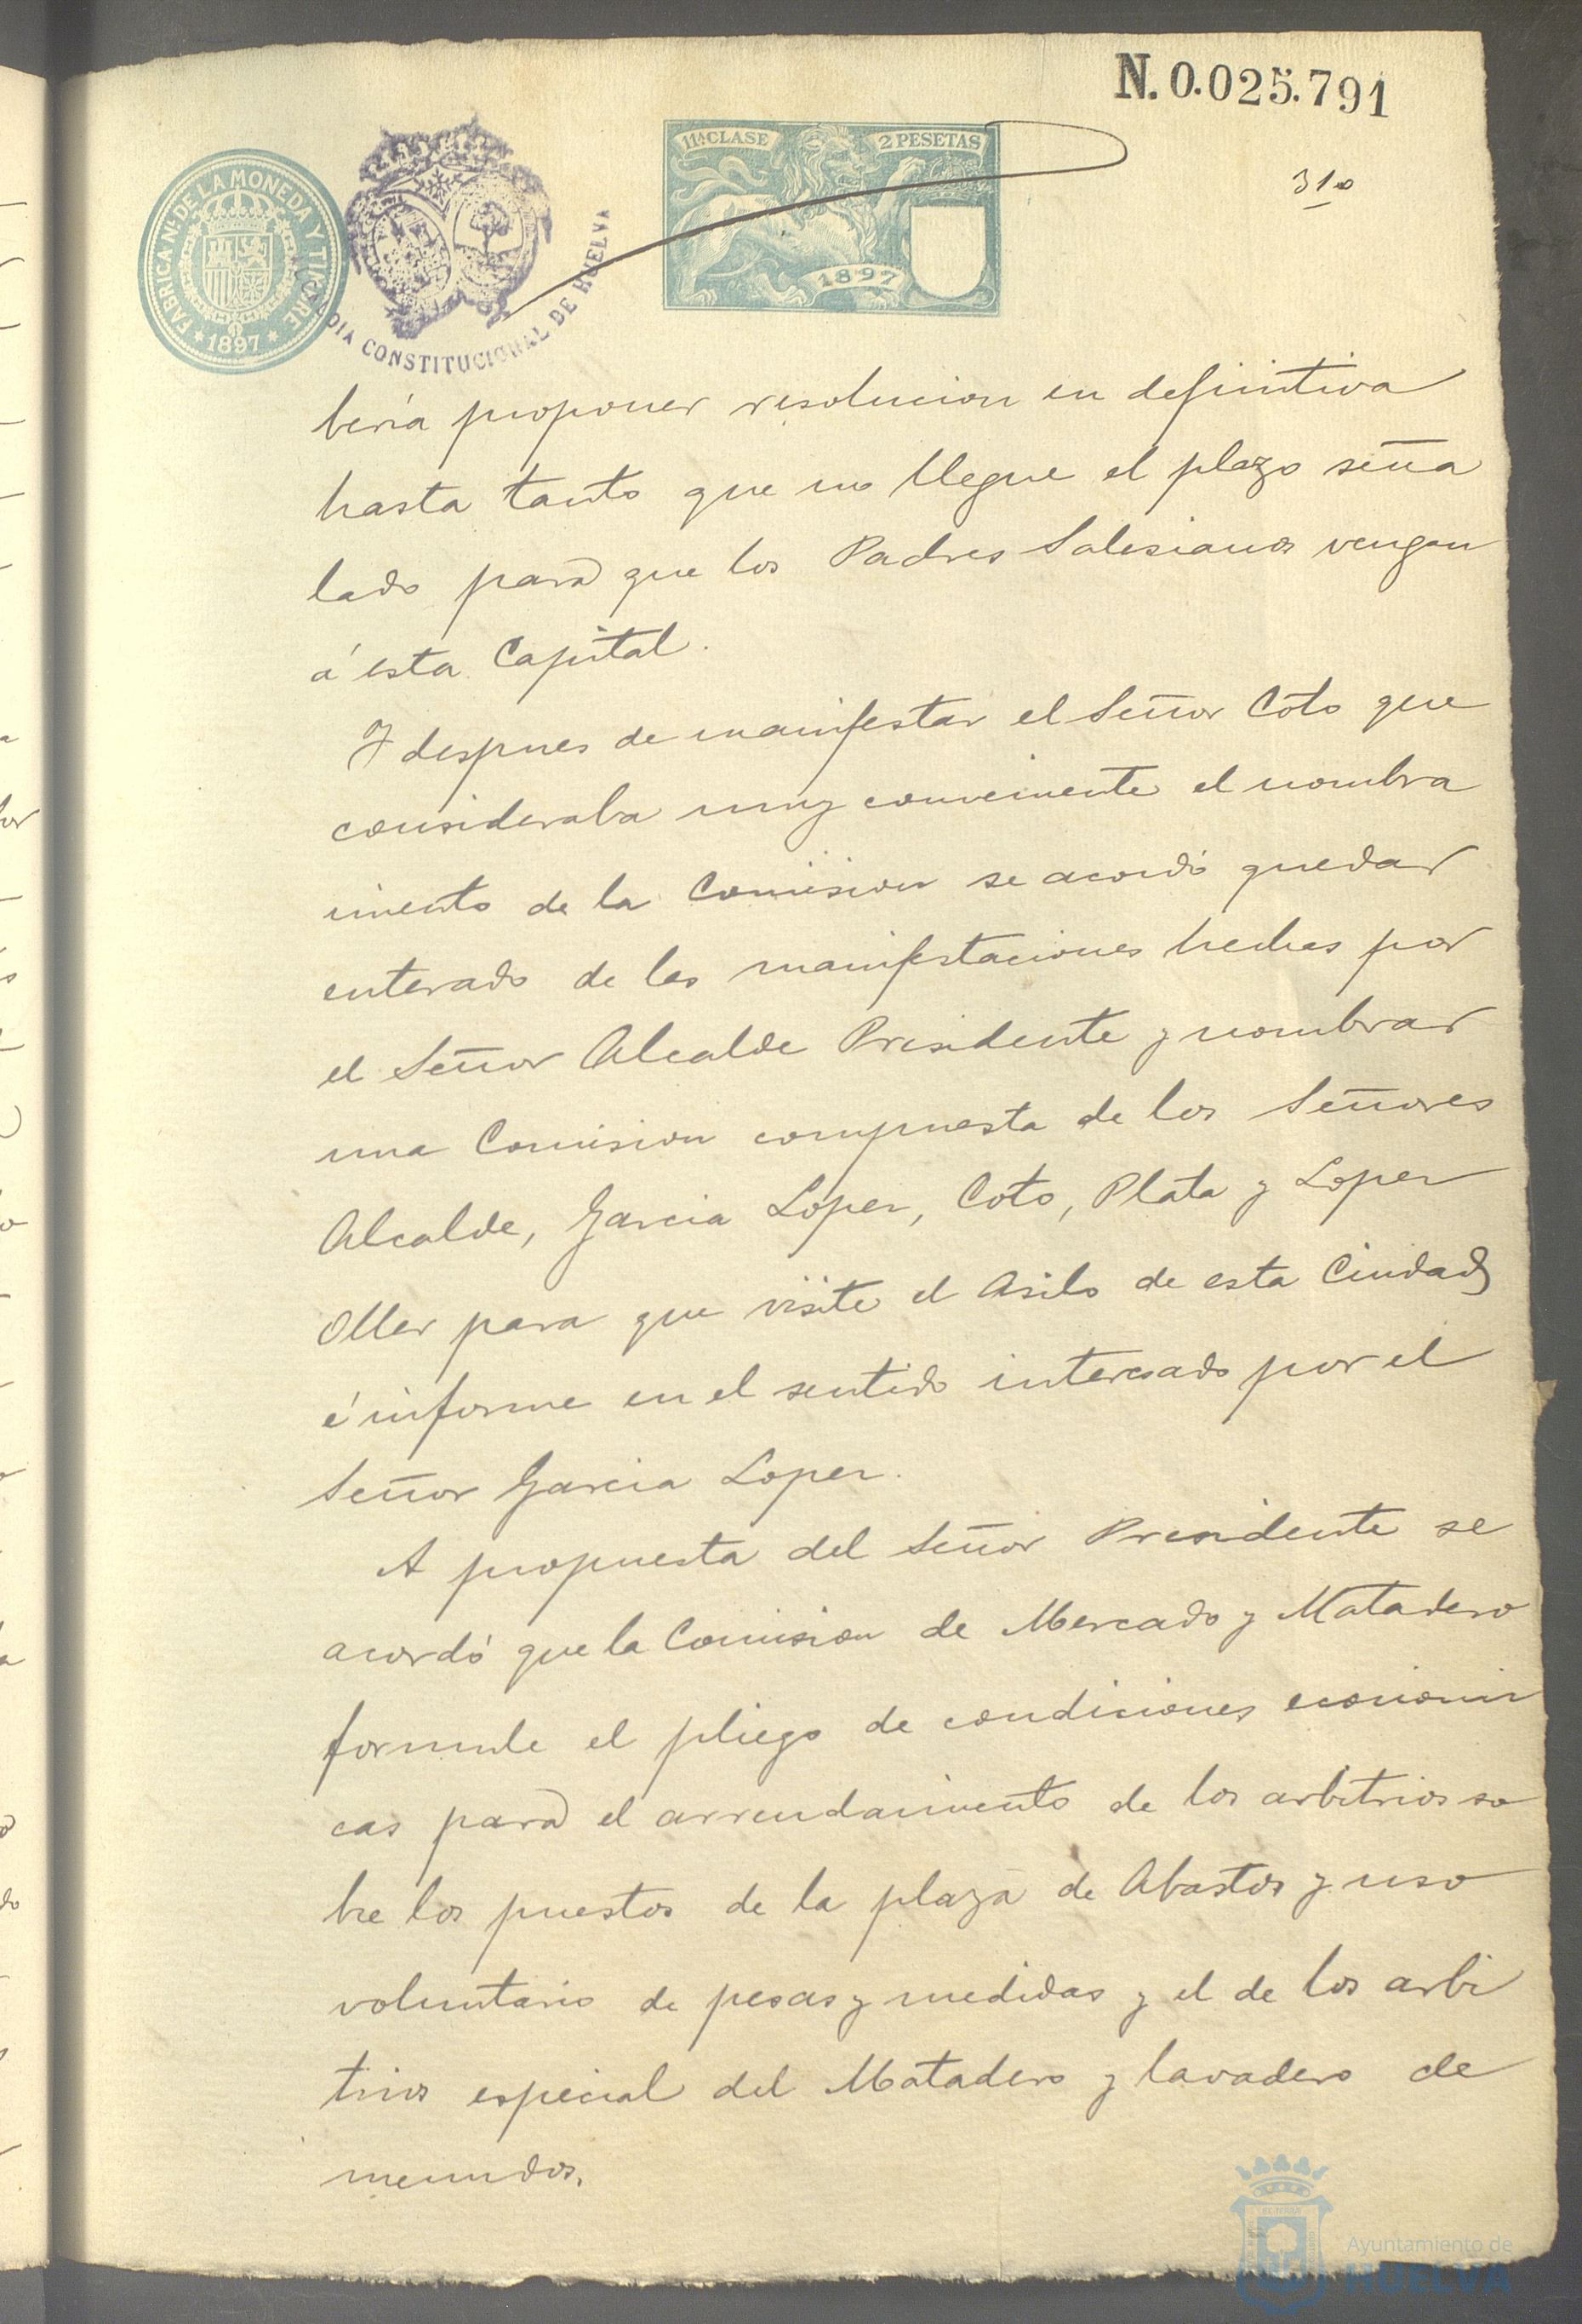 N. 0.025.791
11ª CLASE
2 PESETAS
1897
FABRICA Nal. DE LA MONEDA Y TIMBRE
1897
ALCALDIA CONSTITUCIONAL DE HUELVA
beria proponer resolucion en definitiva
hasta tanto que no llegue el plazo seña
lado para que los Padres Salesianos vengan
á esta Capital.
Y despues de manifestar el Señor Coto que
consideraba muy conveniente el nombra
miento de la Comision se acordó quedar
enterado de las manifestaciones hechas por
el Señor Alcalde Presidente y nombrar
una Comision compuesta de los Señores
Alcalde, Garcia Lopez, Coto, Plata y Lopez
Oller para que visite el Asilo de esta Ciudad
é informe en el sentido interesado por el
Señor Garcia Lopez.
A propuesta del Señor Presidente se
acordó que la Comision de Mercado y Matadero
formule el pliego de condiciones economi
cas para el arrendamiento de los arbitrios so
bre los puestos de la plaza de Abastos y uso
voluntario de pesas y medidas y el de los arbi
trios especial del Matadero y lavadero de
menudos.
Ayuntamiento de
HUELVA